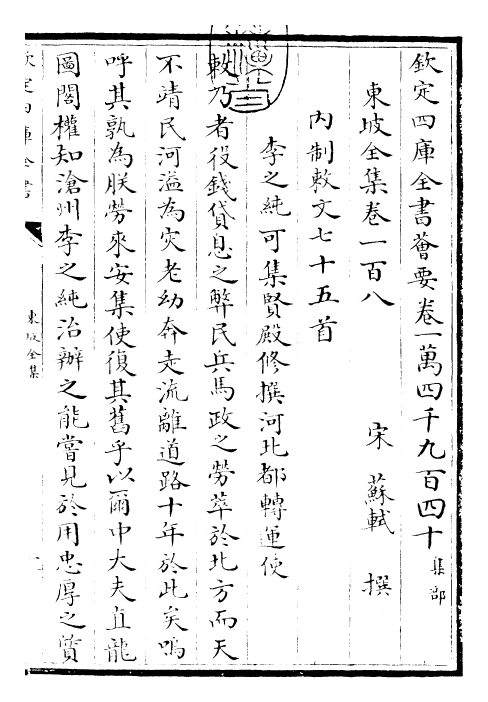 欽定四庫全書薈要卷一萬四千九百四十集部
東坡全集卷一百八
宋蘇軾撰
內制敕文七十五首
李之純可集賢殿修撰河北都轉運使
敕乃者役錢貸息之弊民兵馬政之勞萃於北方而天
不靖民河溢為灾老幼奔走流離道路十年於此矣嗚
呼其孰為朕勞來安集使復其舊乎以爾中大夫直龍
圖閣權知滄州李之純治辦之能嘗見於用忠厚之質
欽定四庫全書
東坡全集